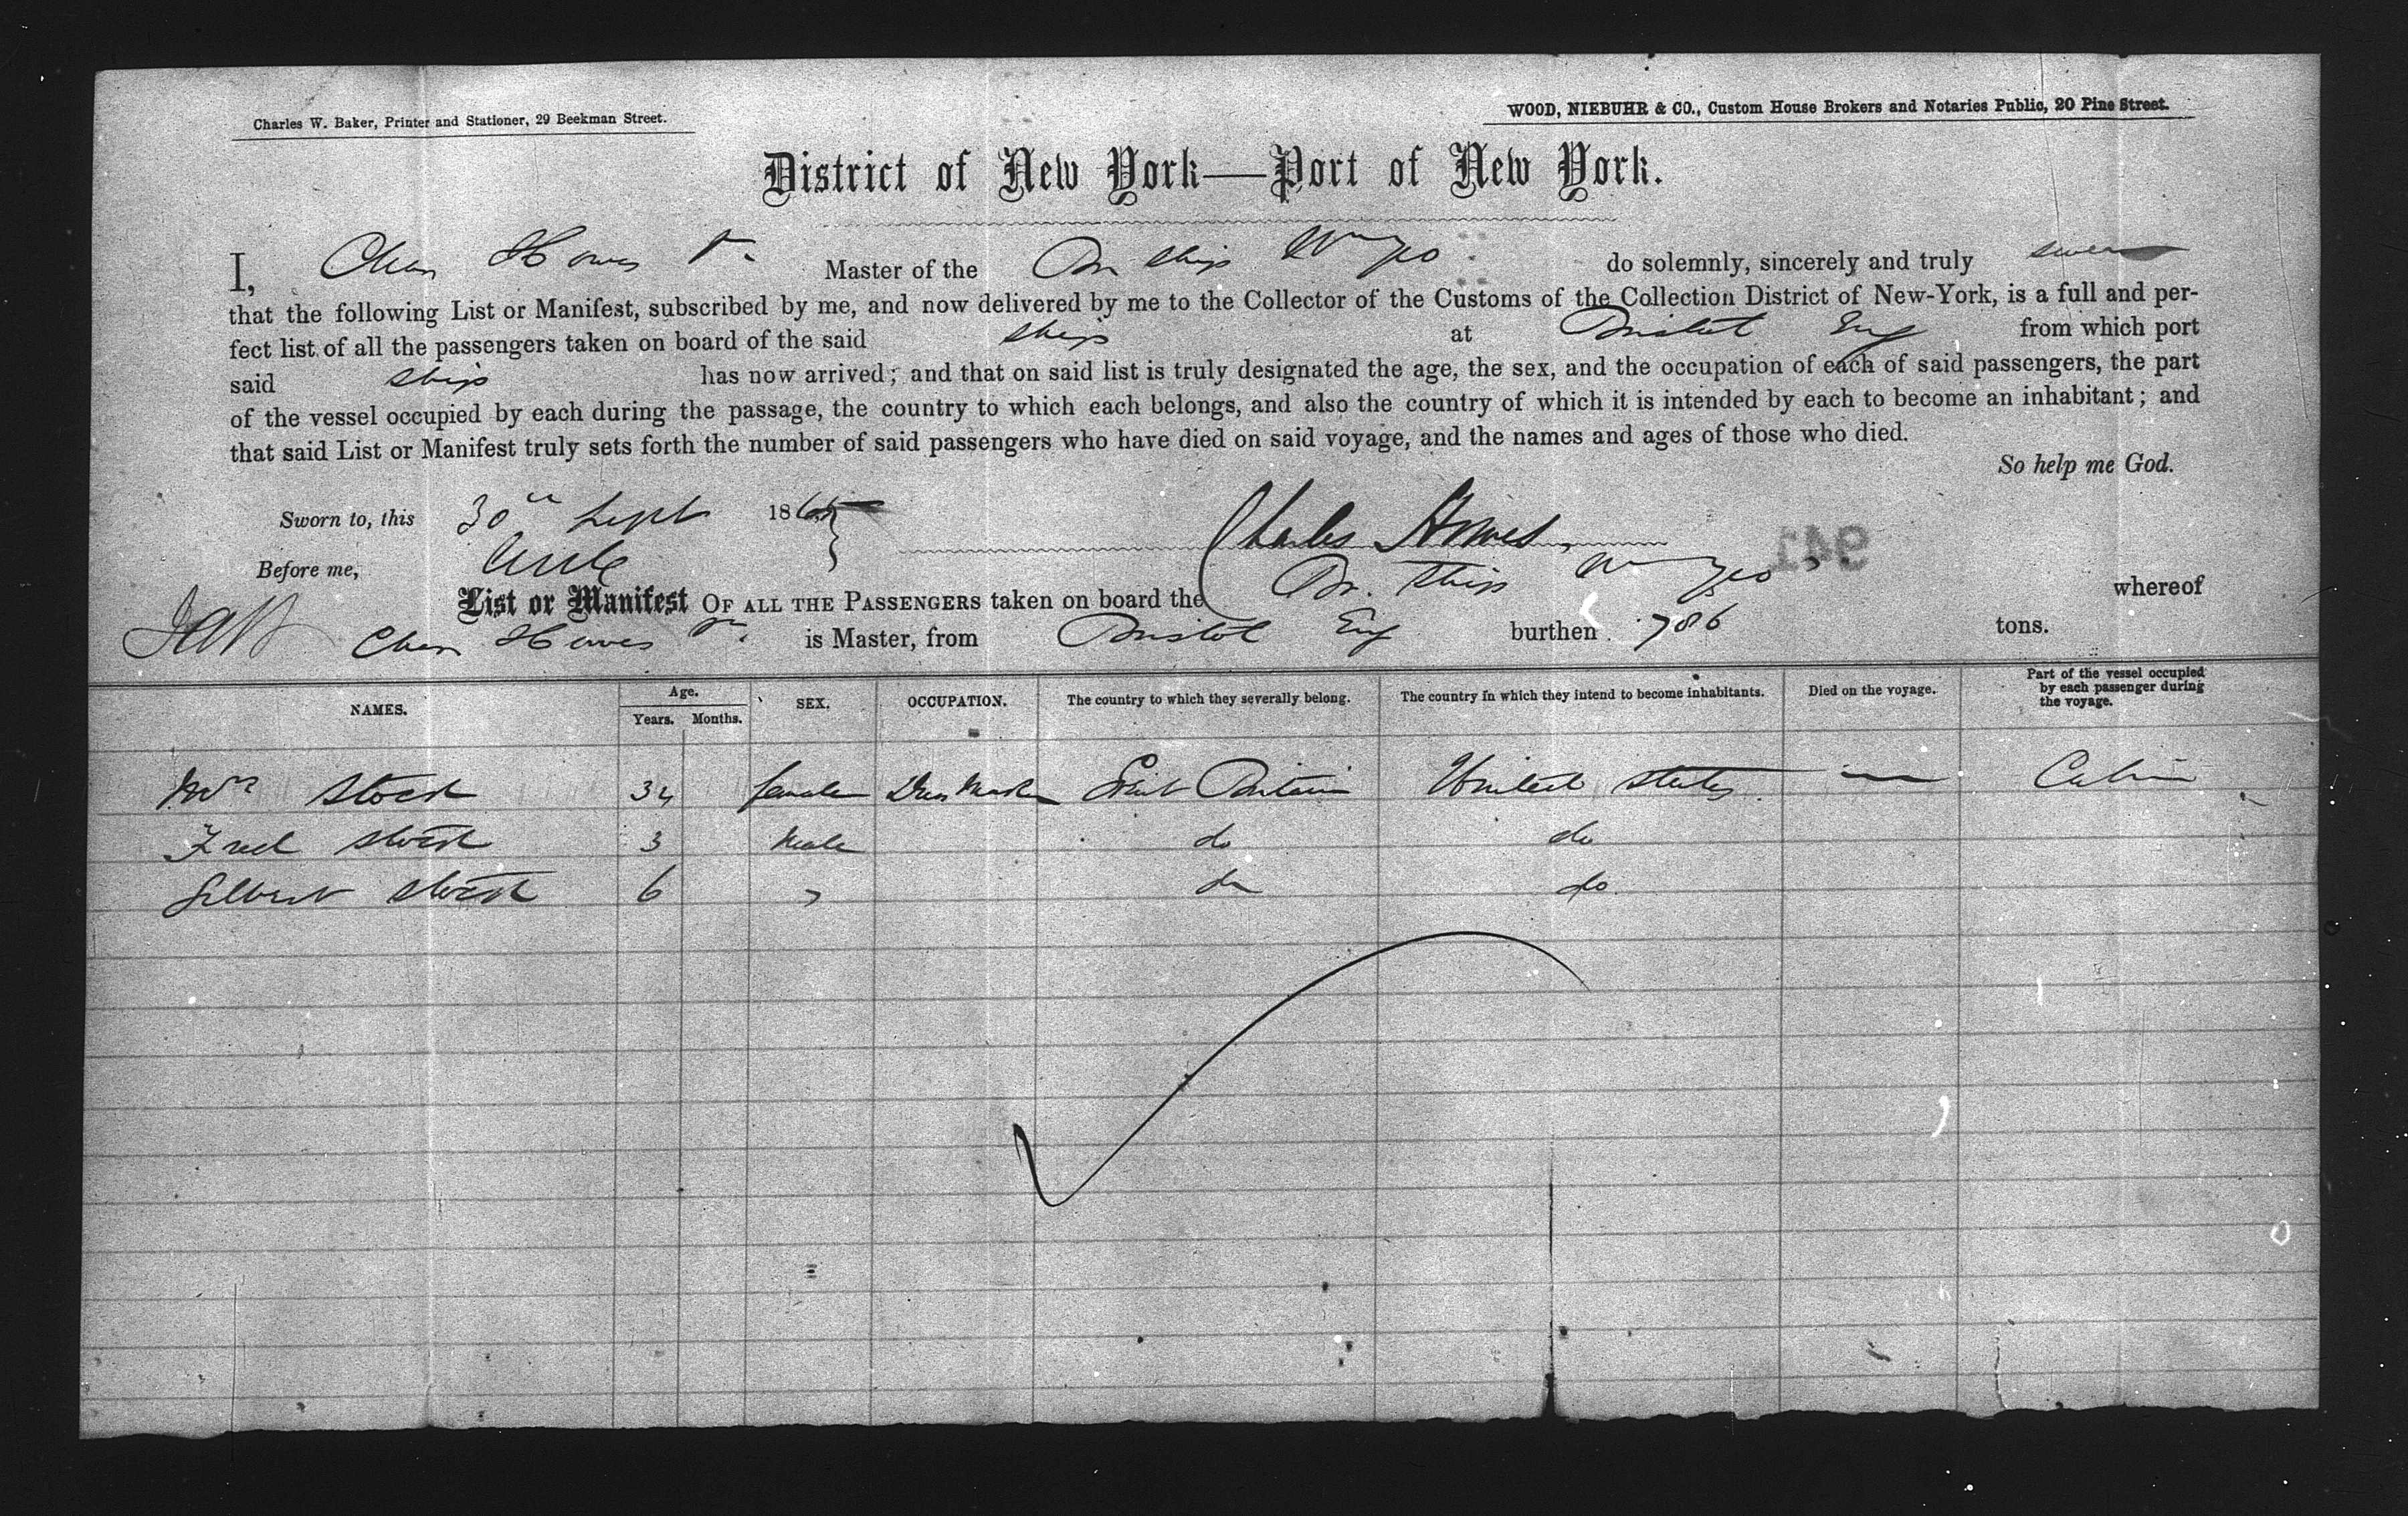 Charles W. Baker, Printer and Stationer, 29 Beekman Street.
WOOD, NIEBUHR & CO., Custom House Brokers and Notaries Public, 20 Pine Street.
District of New York—Port of New York.
I, Chas Howes Jr. Master of the Br Ship Wm Yeo do solemnly, sincerely and truly swear
that the following List or Manifest, subscribed by me, and now delivered by me to the Collector of the Customs of the Collection District of New-York, is a full and per-
fect list of all the passengers taken on board of the said ship at Bristol Eng from which port
said ship has now arrived; and that on said list is truly designated the age, the sex, and the occupation of each of said passengers, the part
of the vessel occupied by each during the passage, the country to which each belongs, and also the country of which it is intended by each to become an inhabitant; and
that said List or Manifest truly sets forth the number of said passengers who have died on said voyage, and the names and ages of those who died.
So help me God.
Sworn to, this 30th Sept 186
Charles Howes
941
Before me,
List or Manifest OF ALL THE PASSENGERS taken on board the Br. Ship Wm Yeo whereof
Chas Howes Jr. is Master, from Bristol Eng burthen 786 tons.
NAMES. Age. Years. Months. SEX. OCCUPATION. The country to which they severally belong. The country in which they intend to become inhabitants. Died on the voyage. Part of the vessel occupied by each passenger during the voyage.
Mrs Stock 34 female Dress Maker Great Britain United States — Cabin
Fred Stock 3 Male do do
Gilbert Stock 6 " do do